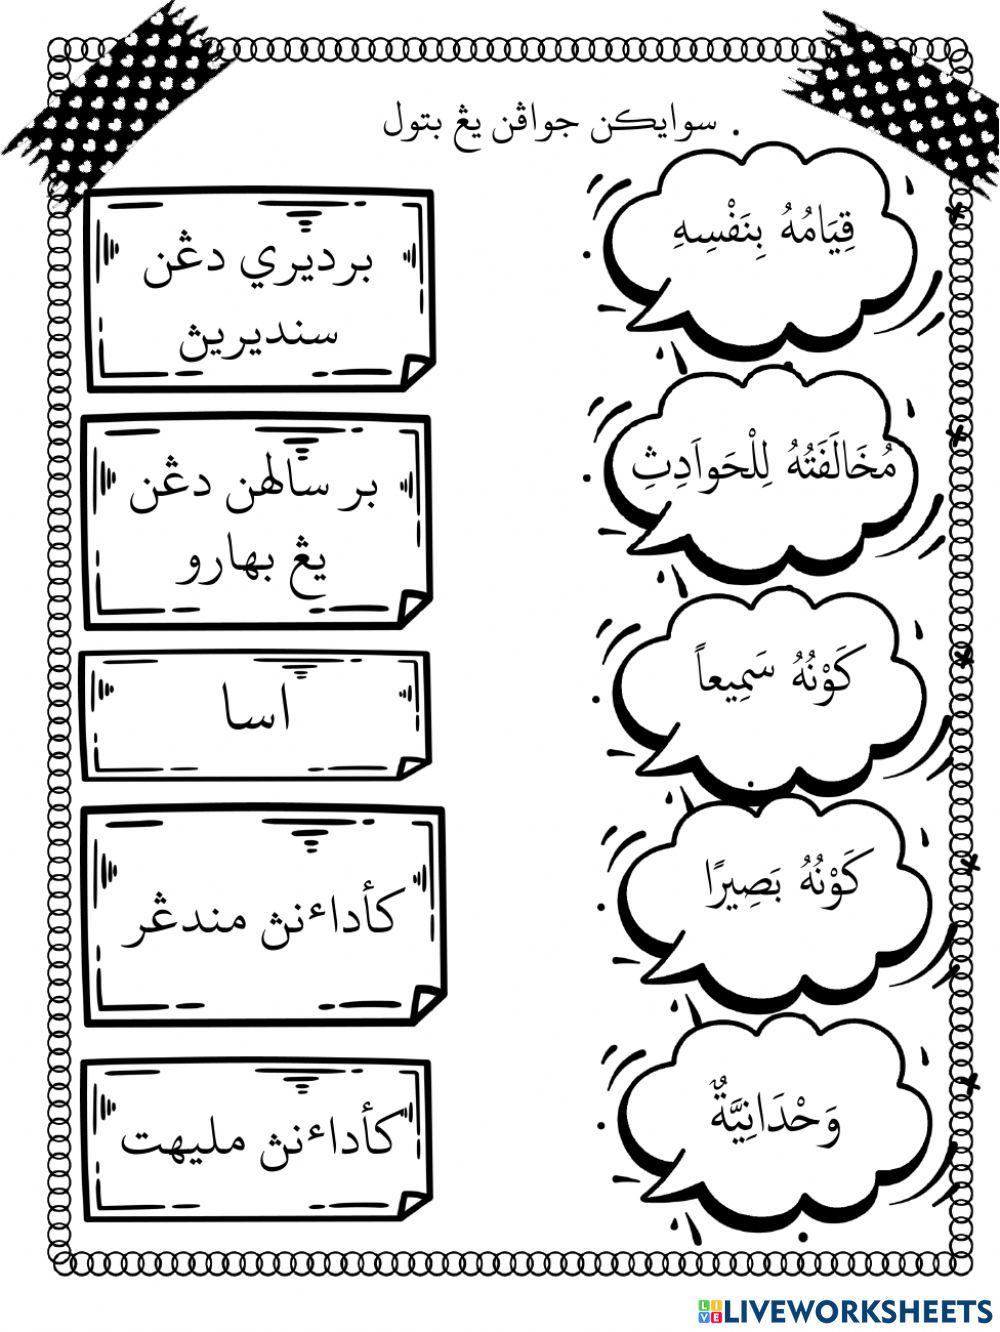 . سوايكن جواڤن يڠ بتول
قِيَامُهُ بِنَفْسِهِ
برديري دڠن
سنديريڽ
مُخَالَفَتُهُ لِلْحَوَادِثِ
بر سالهن دڠن
يڠ بهارو
كَوْنُهُ سَمِيعاً
اسا
كَوْنُهُ بَصِيرًا
كأداءنڽ مندڠر
وَحْدَانِيَّةٌ
كأداءنڽ مليهت
LIVEWORKSHEETS